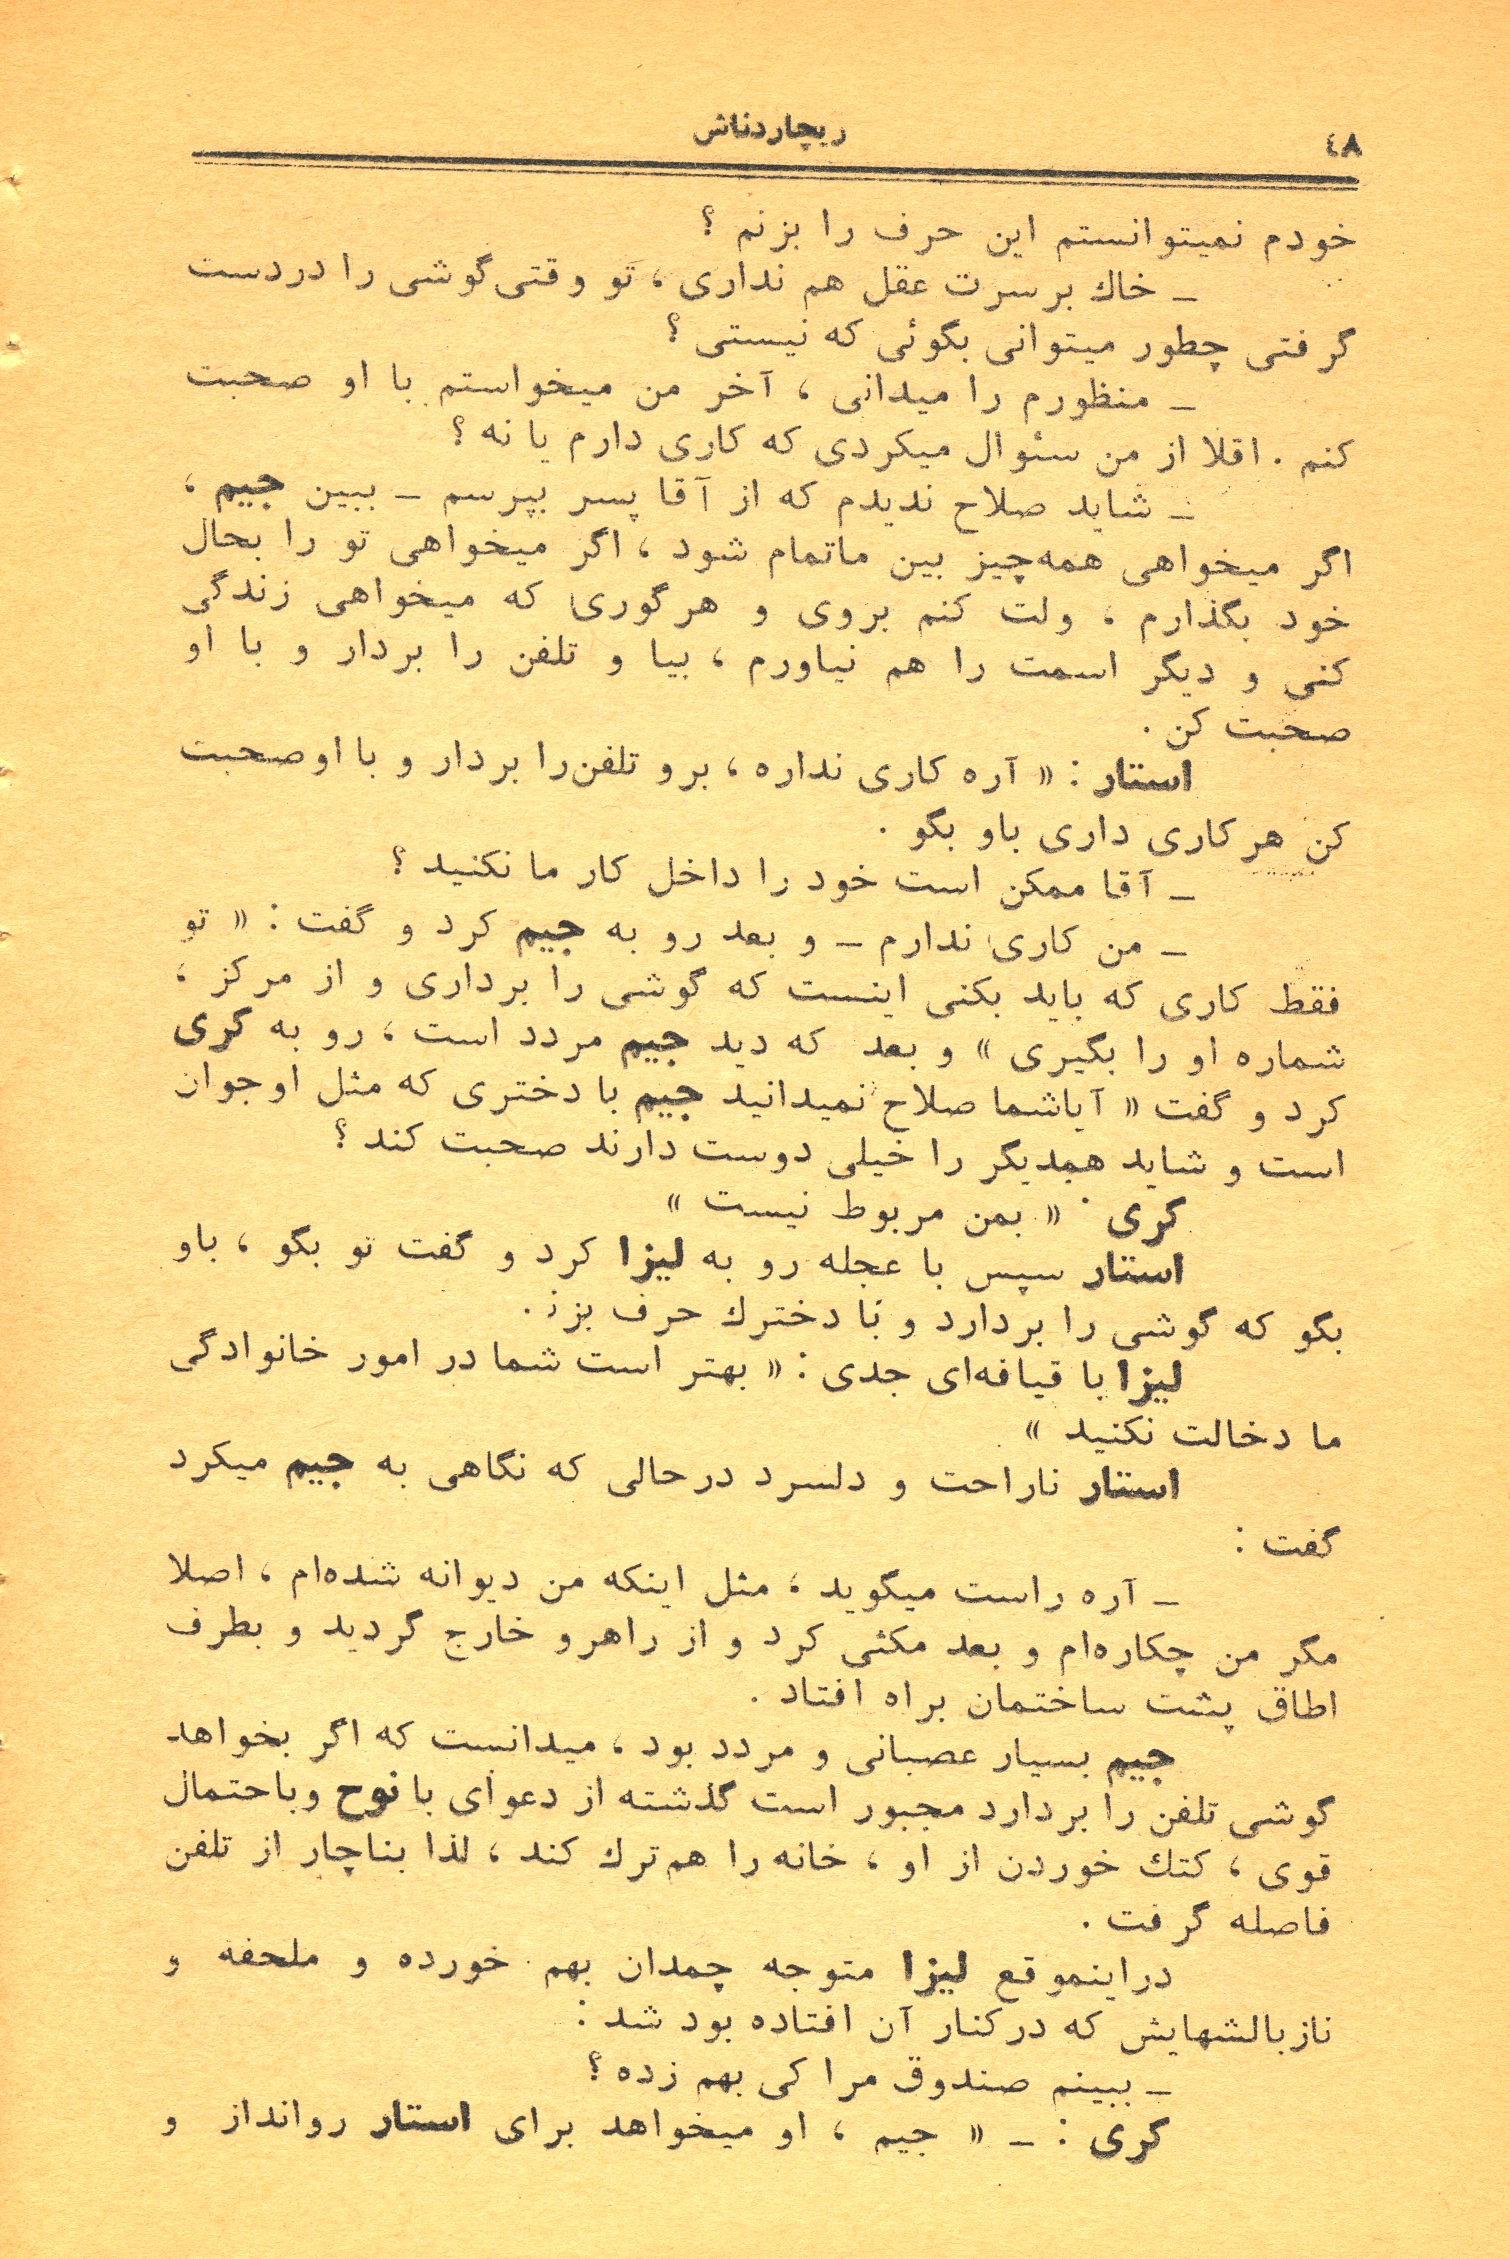 ۴۸
ریچاردناش
خودم نمیتوانستم این حرف را بزنم ؟
ـ خاك برسرت عقل هم نداری ، تو وقتی گوشی را دردست
گرفتی چطور میتوانی بگوئی که نیستی ؟
ـ منظورم را میدانی ، آخر من میخواستم با او صحبت
کنم . اقلا از من سئوال میکردی که کاری دارم یا نه ؟
ـ شاید صلاح ندیدم که از آقا پسر بپرسم ـ ببین جیم ،
اگر میخواهی همه‌چیز بین ماتمام شود ، اگر میخواهی تو را بحال
خود بگذارم ، ولت کنم بروی و هرگوری که میخواهی زندگی
کنی و دیگر اسمت را هم نیاورم ، بیا و تلفن را بردار و با او
صحبت کن .
استار : « آره کاری نداره ، برو تلفن‌را بردار و با اوصحبت
کن هرکاری داری باو بگو .
ـ آقا ممکن است خود را داخل کار ما نکنید ؟
ـ من کاری ندارم ـ و بعد رو به جیم کرد و گفت : « تو
فقط کاری که باید بکنی اینست که گوشی را برداری و از مرکز ،
شماره او را بگیری » و بعد که دید جیم مردد است ، رو به گری
کرد و گفت « آیاشما صلاح نمیدانید جیم با دختری که مثل او جوان
است و شاید همدیگر را خیلی دوست دارند صحبت کند ؟
گری : « بمن مربوط نیست »
استار سپس با عجله رو به لیزا کرد و گفت تو بگو ، باو
بگو که گوشی را بردارد و با دخترك حرف بزند .
لیزا با قیافه‌ای جدی : « بهتر است شما در امور خانوادگی
ما دخالت نکنید »
استار ناراحت و دلسرد درحالی که نگاهی به جیم میکرد
گفت :
ـ آره راست میگوید ، مثل اینکه من دیوانه شده‌ام ، اصلا
مگر من چکاره‌ام و بعد مکثی کرد و از راهرو خارج گردید و بطرف
اطاق پشت ساختمان براه افتاد .
جیم بسیار عصبانی و مردد بود ، میدانست که اگر بخواهد
گوشی تلفن را بردارد مجبور است گذشته از دعوای با نوح وباحتمال
قوی ، کتك خوردن از او ، خانه را هم‌ترك کند ، لذا بناچار از تلفن
فاصله گرفت .
دراینموقع لیزا متوجه چمدان بهم خورده و ملحفه و
نازبالشهایش که درکنار آن افتاده بود شد :
ـ ببینم صندوق مرا کی بهم زده ؟
گری : ـ « جیم ، او میخواهد برای استار روانداز و